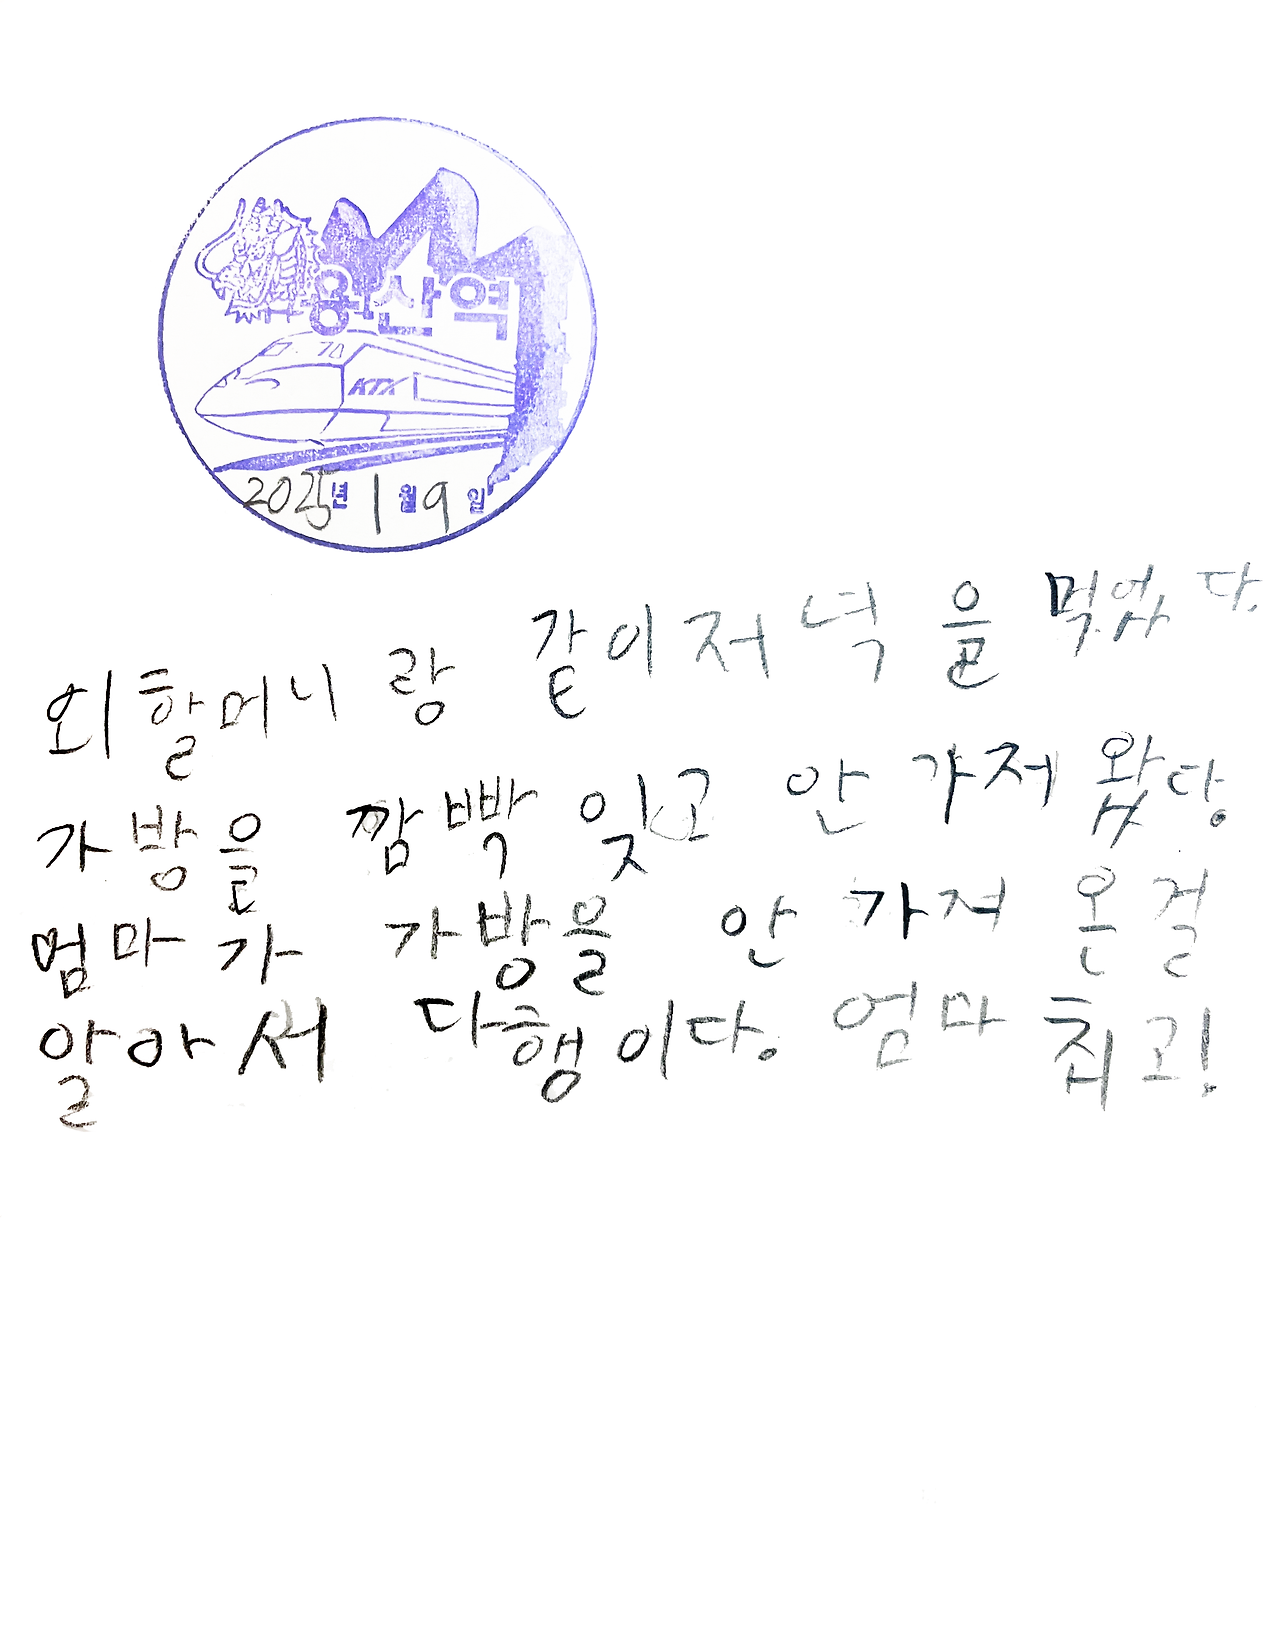 용산역
KTX
2025년 1월 9일
외할머니랑 같이 저녁을 먹었다.
가방을 깜빡 잊고 안 가저 왔다.
엄마가 가방을 안 가져 온걸
알아서 다행이다. 엄마 최고!